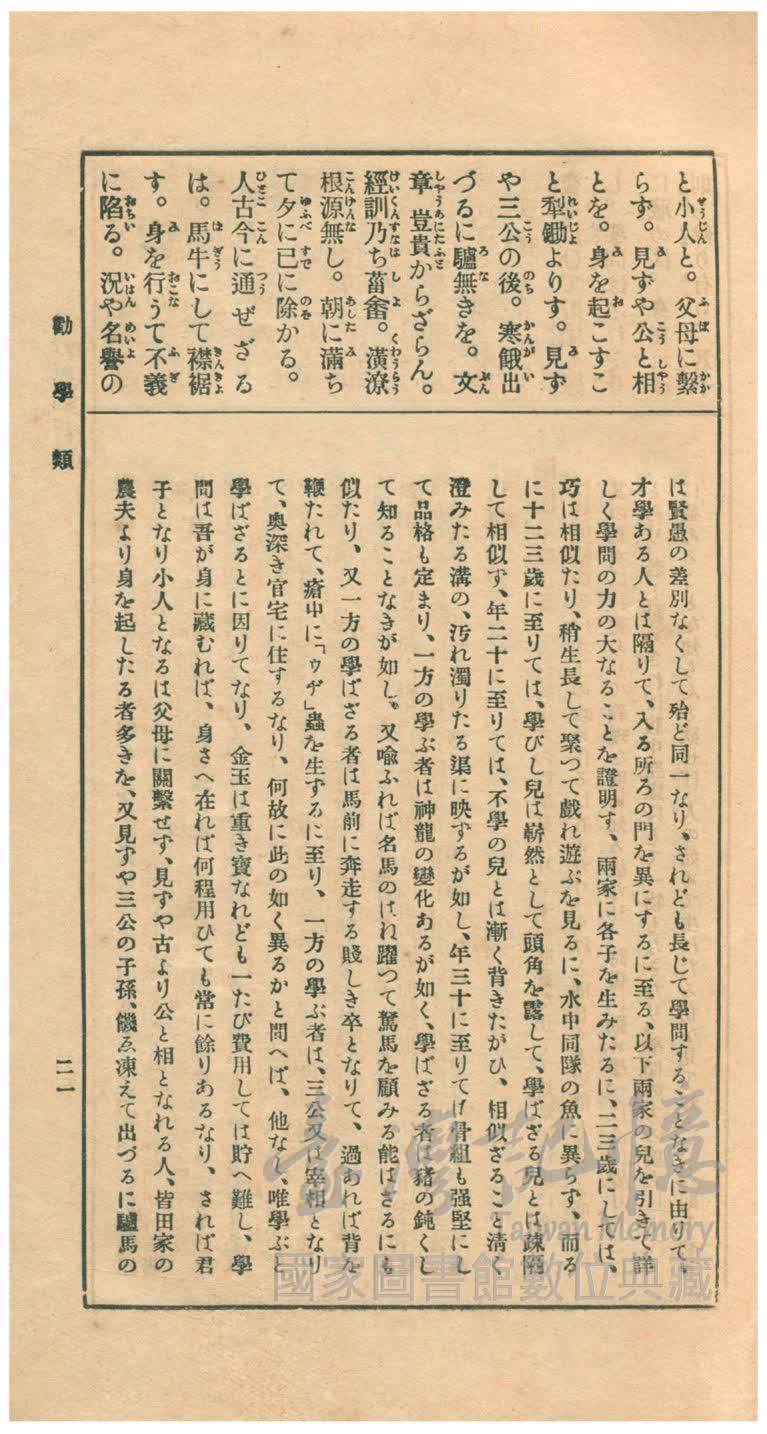 と小人と。父母に繫
らず。見ずや公と相
とを。身を起こすこ
と犁鋤よりす。見ず
や三公の後。寒餓出
づるに驢無きを。文
章豈貴からざらん。
經訓乃ち菑畬。潢潦
根源無し。朝に滿ち
て夕に已に除かる。
人古今に通ぜざる
は。馬牛にして襟裾
す。身を行うて不義
に陷る。況や名譽の
は賢愚の差別なくして殆ど同一なり、されども長じて學問することなきに由りて、
才學ある人とは隔りて、入る所ろの門を異にするに至る、以下兩家の兒を引きて詳
しく學問の力の大なることを證明す、兩家に各子を生みたるに、二三歲にしては、
巧は相似たり、稍生長して聚つて戲れ遊ぶを見るに、水中同隊の魚に異らず、而る
に十二三歲に至りては、學びし兒は嶄然として頭角を露して、學ばざる兒とは疎隔
して相似ず、年二十に至りては、不學の兒とは漸く背きたがひ、相似ざること淸く
澄みたる溝の、汚れ濁りたる渠に映ずるが如し、年三十に至りては骨組も强堅にし
て品格も定まり、一方の學ぶ者は神龍の變化あるが如く、學ばざる者は猪の鈍くし
て知ることなきが如し。又喩ふれば名馬のはね躍つて駑馬を顧みる能はざるにも
似たり、又一方の學ばざる者は馬前に奔走する賤しき卒となりて、過あれば背を
鞭たれて、瘡中に「ウヂ」蟲を生ずるに至り、一方の學ぶ者は、三公又は宰相となり
て、奧深き官宅に住するなり、何故に此の如く異るかと問へば、他なし、唯學ぶと
學ばざるとに因りてなり、金玉は重き寶なれども一たび費用しては貯へ難し、學
問は吾が身に藏むれば、身さへ在れば何程用ひても常に餘りあるなり、されば君
子となり小人となるは父母に關繫せず、見ずや古より公と相となれる人、皆田家の
農夫より身を起したる者多きを、又見ずや三公の子孫、饑ゑ凍えて出づるに驢馬の
勸學類
二一
臺灣記憶
Taiwan Memory
國家圖書館數位典藏